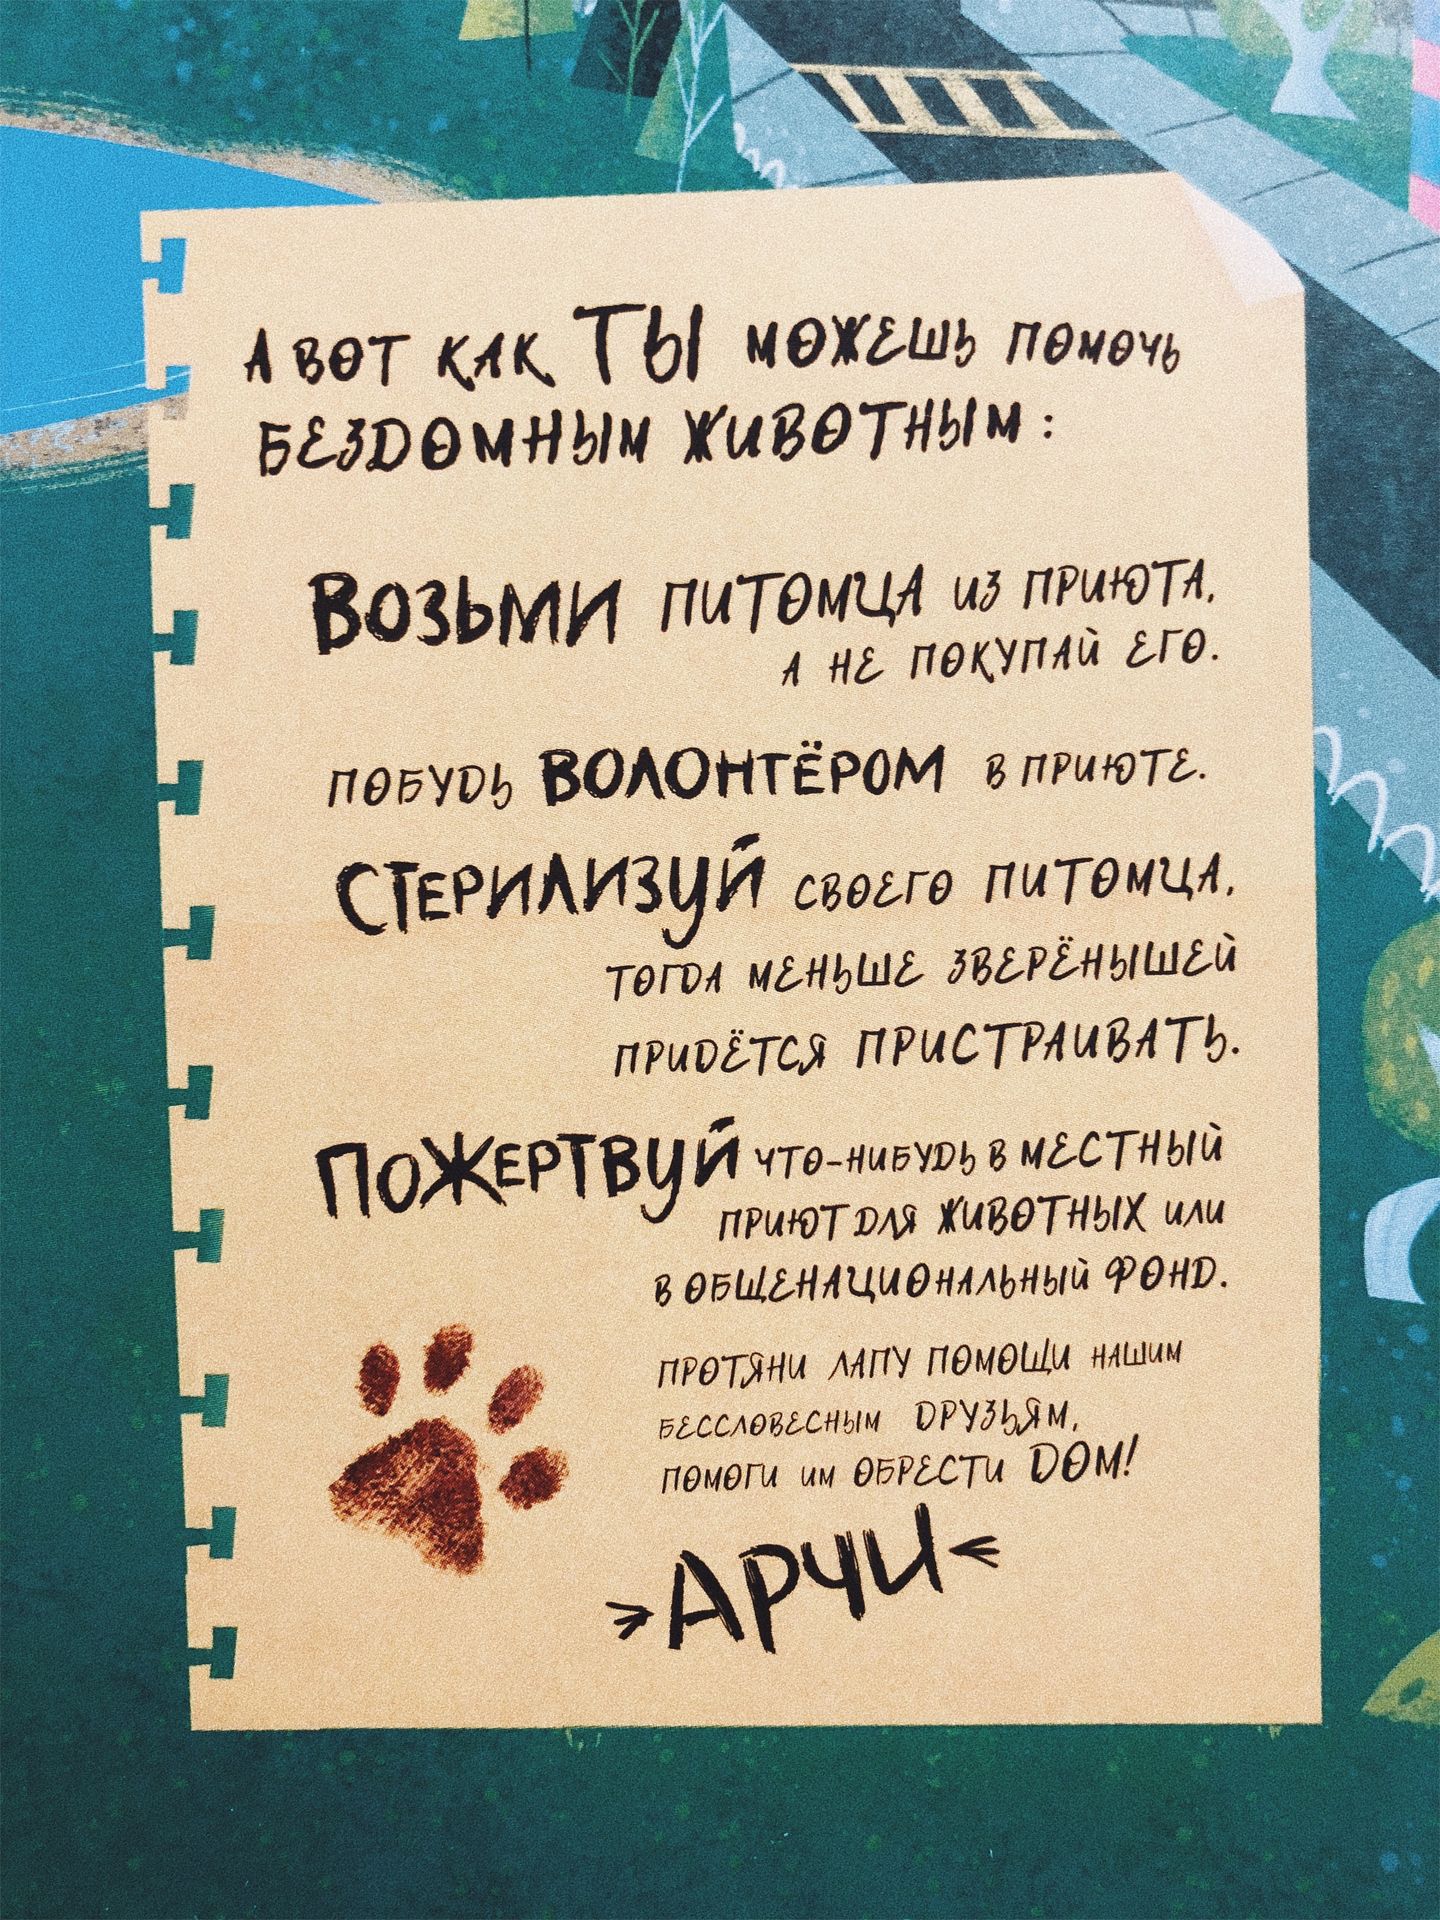 А ВОТ КАК ТЫ МОЖЕШЬ ПОМОЧЬ
БЕЗДОМНЫМ ЖИВОТНЫМ:
ВОЗЬМИ ПИТОМЦА ИЗ ПРИЮТА,
А НЕ ПОКУПАЙ ЕГО.
ПОБУДЬ ВОЛОНТЁРОМ В ПРИЮТЕ.
СТЕРИЛИЗУЙ СВОЕГО ПИТОМЦА,
ТОГДА МЕНЬШЕ ЗВЕРЁНЫШЕЙ
ПРИДЁТСЯ ПРИСТРАИВАТЬ.
ПОЖЕРТВУЙ ЧТО-НИБУДЬ В МЕСТНЫЙ
ПРИЮТ ДЛЯ ЖИВОТНЫХ ИЛИ
В ОБЩЕНАЦИОНАЛЬНЫЙ ФОНД.
ПРОТЯНИ ЛАПУ ПОМОЩИ НАШИМ
БЕССЛОВЕСНЫМ ДРУЗЬЯМ,
ПОМОГИ ИМ ОБРЕСТИ ДОМ!
АРЧИ